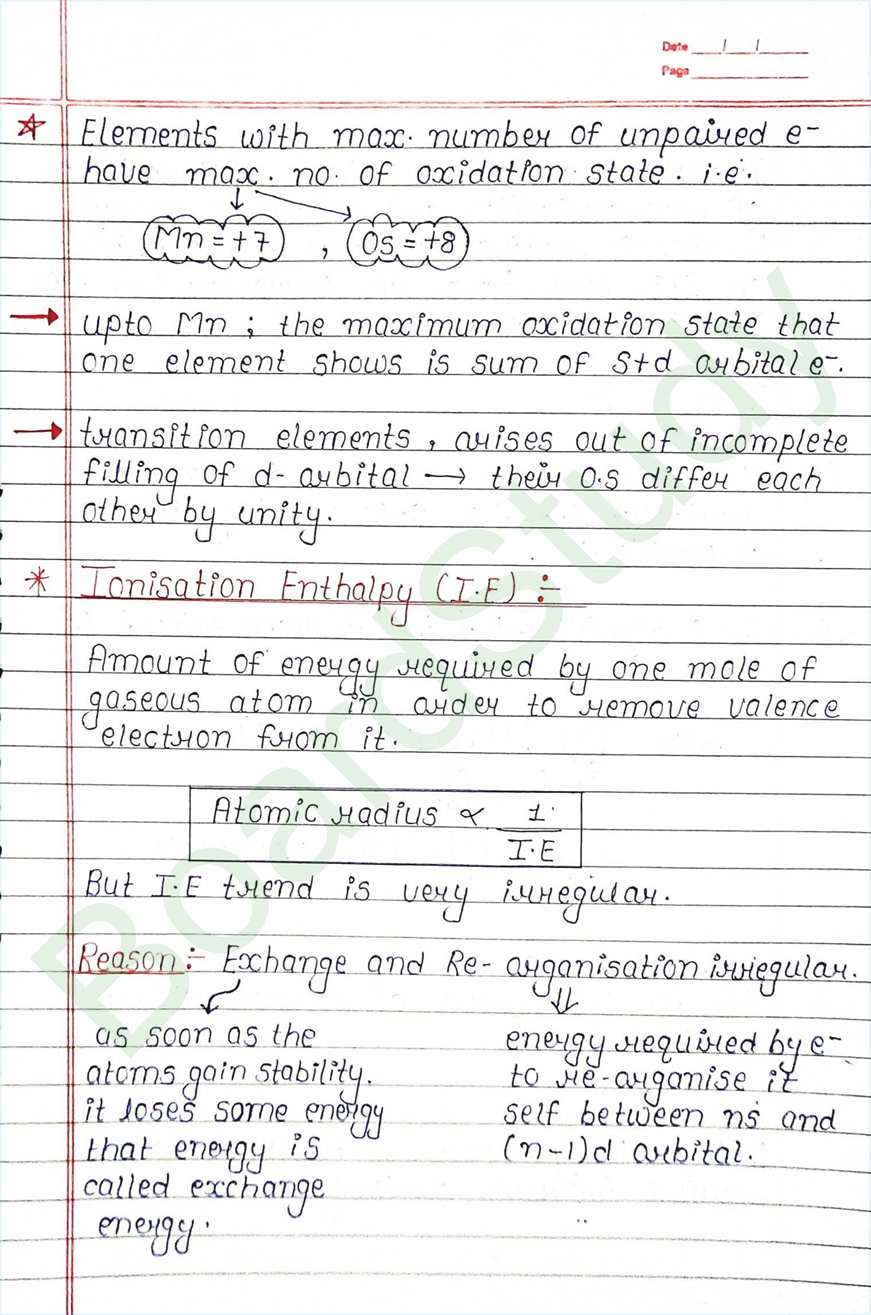 Date __/__/____
Page ________
☆ Elements with max. number of unpaired e-
have max. no. of oxidation state. i.e.
Mn = +7 , Os = +8
→ upto Mn ; the maximum oxidation state that
one element shows is sum of S+d arbital e-.
→ transition elements, arises out of incomplete
filling of d- arbital → their O.S differ each
other by unity.
* Ionisation Enthalpy (I.E) :-
Amount of energy required by one mole of
gaseous atom in arder to remove valence
electron from it.
Atomic radius ∝ 1
I.E
But I.E trend is very irregular.
Reason :- Exchange and Re- arganisation irriegular.
as soon as the
atoms gain stability.
it loses some energy
that energy is
called exchange
energy.
energy required by e-
to re-arganise it
self between ns and
(n-1)d arbital.
BoardStudy